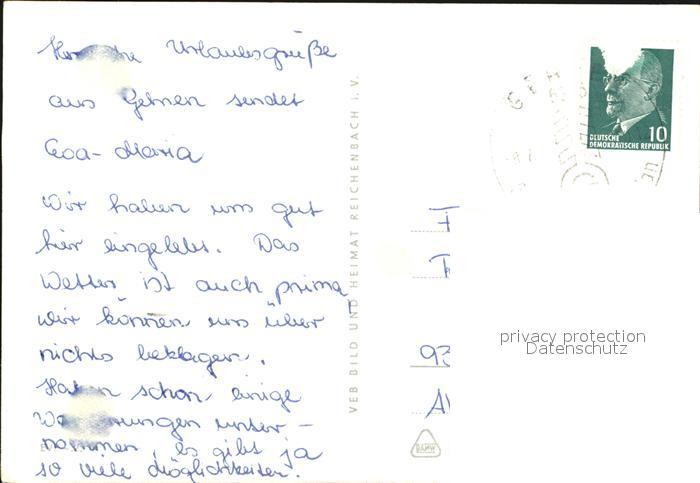 Urlaubsgrüße
aus Gehren sendet
Eva-Maria
Wir haben uns gut
hier eingelebt. Das
Wetter ist auch prima!
Wir können uns über
nichts beklagen.
Haben schon einige
Wanderungen unter-
nommen, es gibt ja
so viele Möglichkeiten.
VEB BILD UND HEIMAT REICHENBACH I. V.
10
DEUTSCHE
DEMOKRATISCHE REPUBLIK
93
privacy protection
Datenschutz